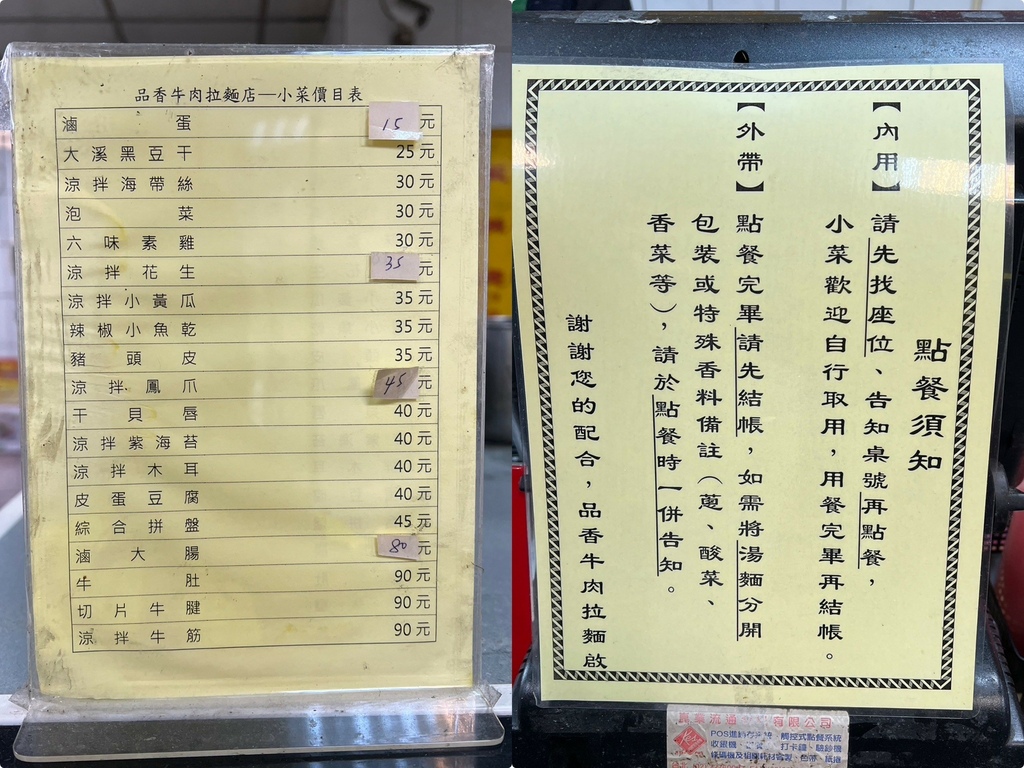 品香牛肉拉麵店—小菜價目表
滷蛋 15元
大溪黑豆干 25元
涼拌海帶絲 30元
泡菜 30元
六味素雞 30元
涼拌花生 35元
涼拌小黃瓜 35元
辣椒小魚乾 35元
豬頭皮 35元
涼拌鳳爪 45元
干貝唇 40元
涼拌紫海苔 40元
涼拌木耳 40元
皮蛋豆腐 40元
綜合拼盤 45元
滷大腸 80元
牛肚 90元
切片牛腱 90元
涼拌牛筋 90元
點餐須知
【內用】請先找座位、告知桌號再點餐，
小菜歡迎自行取用，用餐完畢再結帳。
【外帶】點餐完畢請先結帳，如需將湯麵分開
包裝或特殊香料備註（蔥、酸菜、
香菜等），請於點餐時一併告知。
謝謝您的配合，品香牛肉拉麵啟
有限公司
POS進銷存系統、觸控式點餐系統
收銀機、打卡鐘、驗鈔機